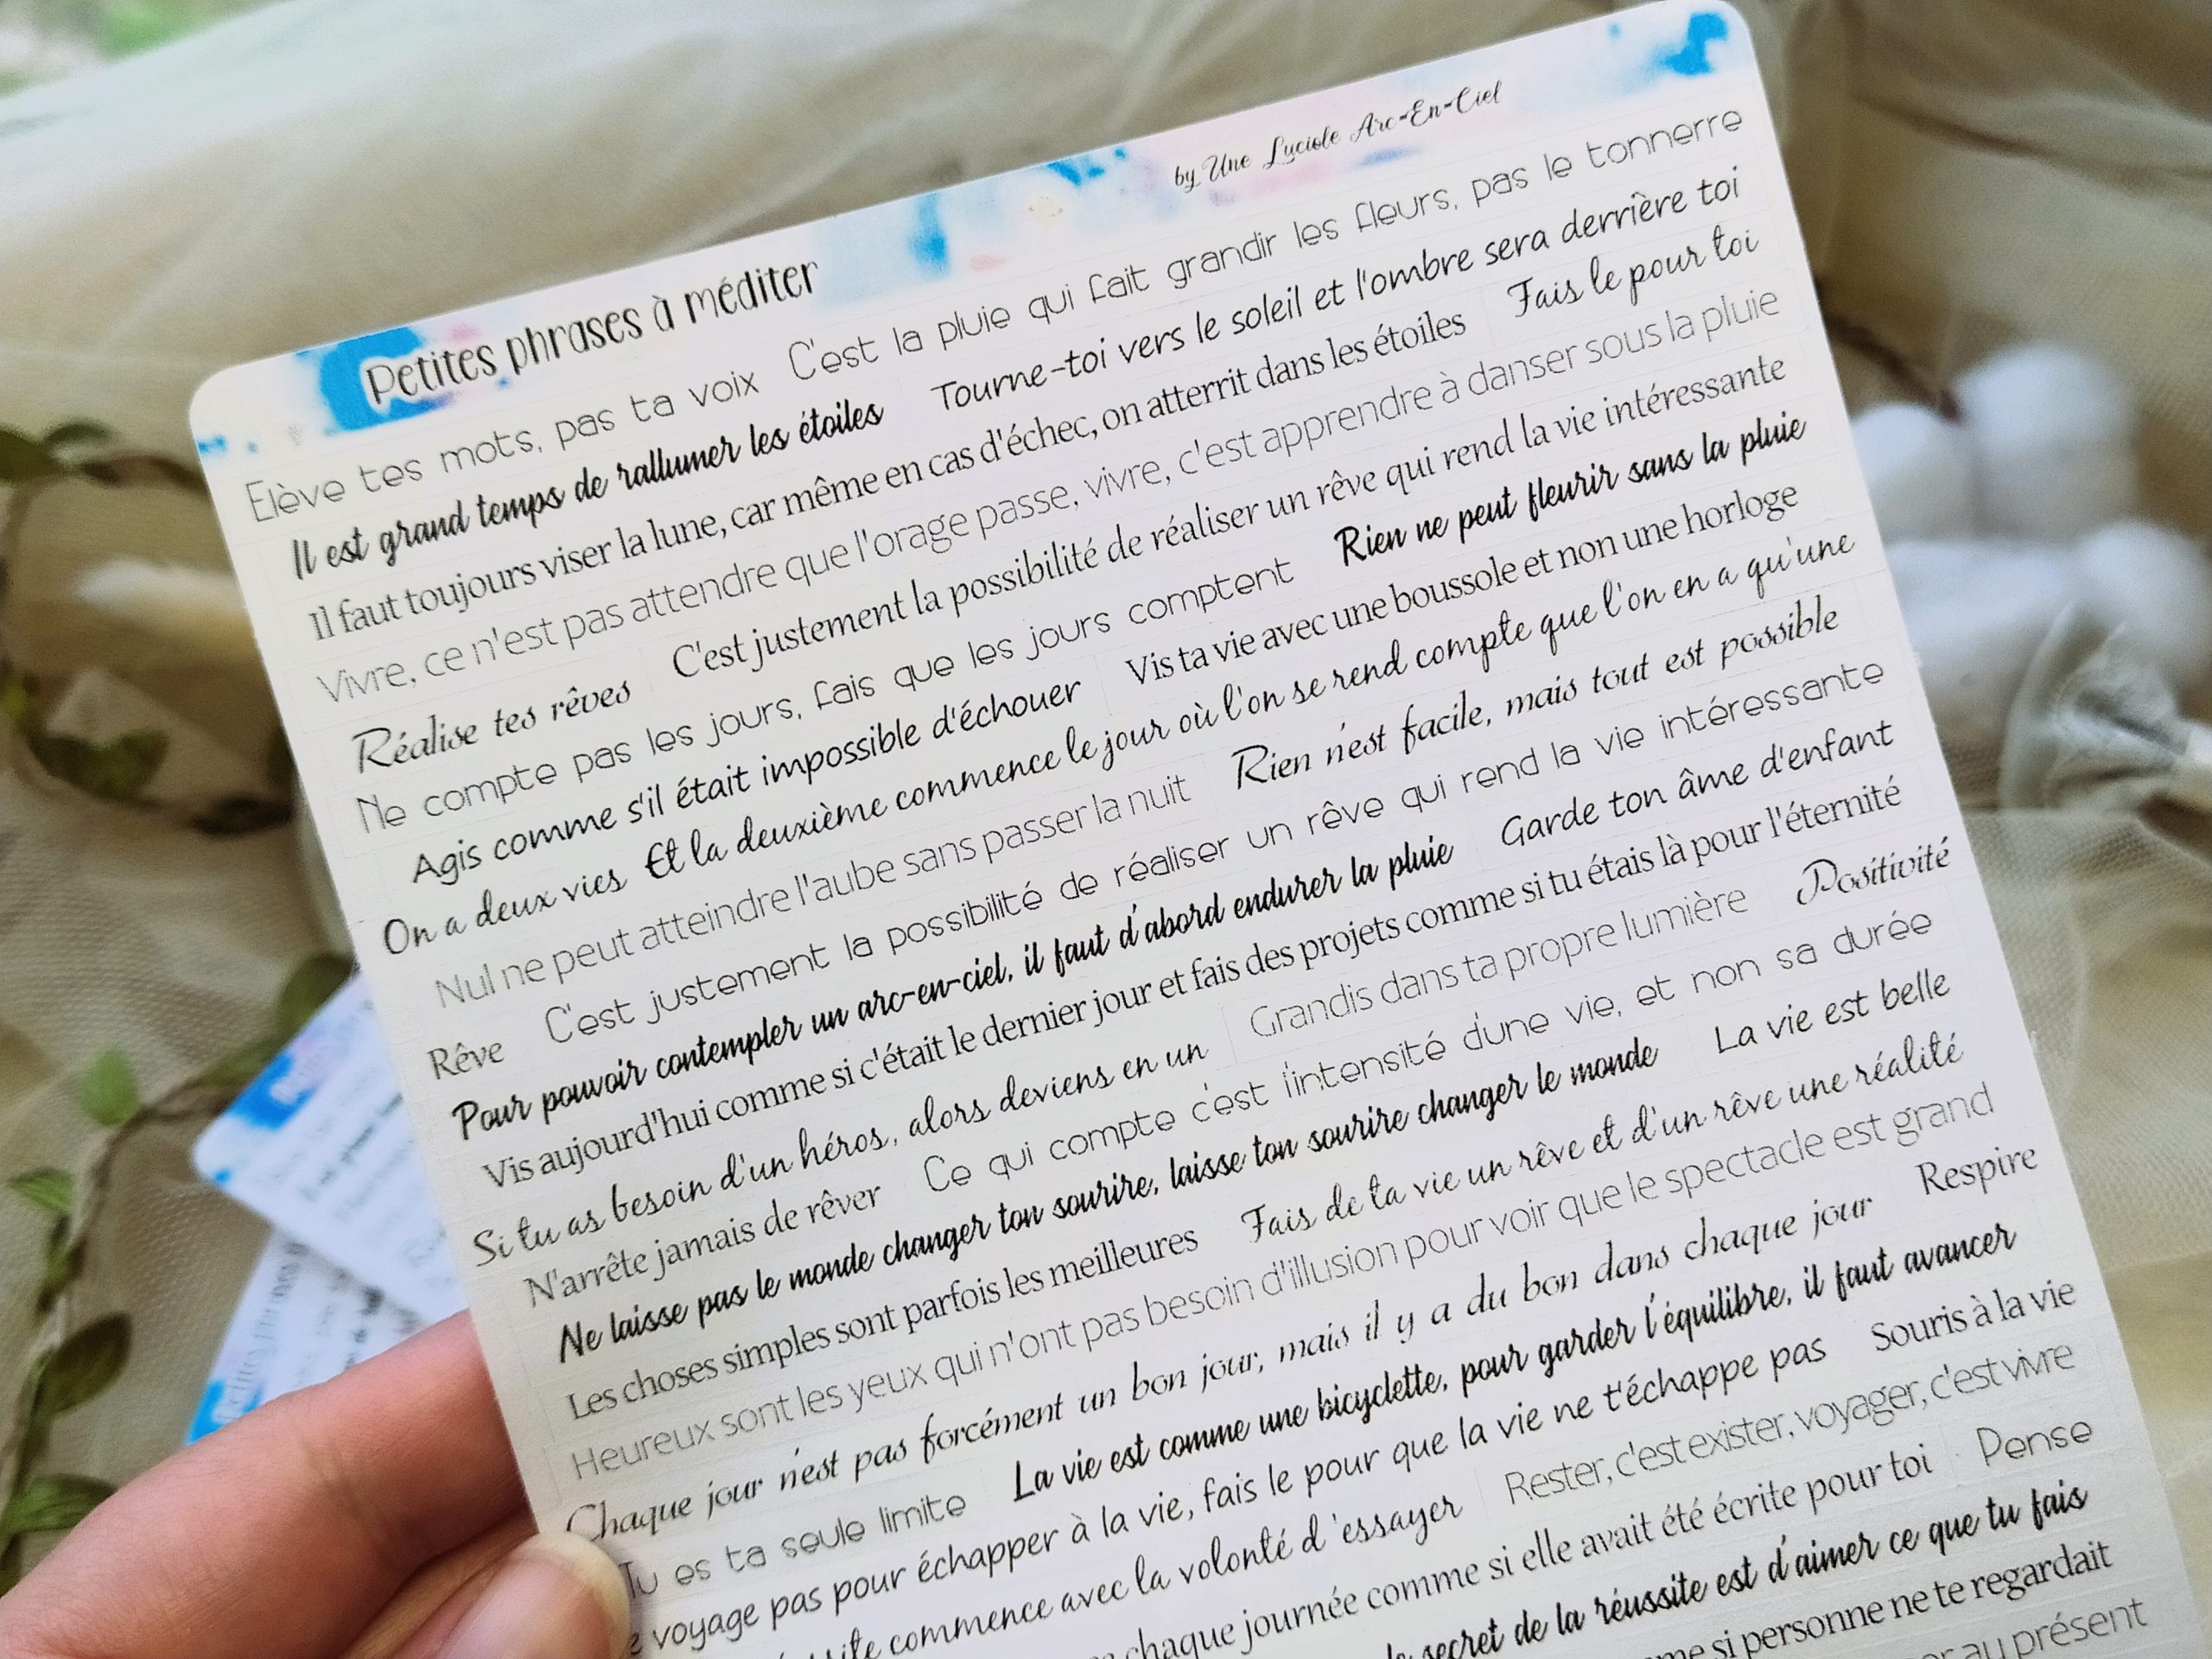 Petites phrases à méditer
by Une Luciole Arc-En-Ciel
Elève tes mots, pas ta voix C'est la pluie qui fait grandir les fleurs, pas le tonnerre
Il est grand temps de rallumer les étoiles Tourne-toi vers le soleil et l'ombre sera derrière toi
Il faut toujours viser la lune, car même en cas d'échec, on atterrit dans les étoiles Fais le pour toi
Vivre, ce n'est pas attendre que l'orage passe, vivre, c'est apprendre à danser sous la pluie
Réalise tes rêves C'est justement la possibilité de réaliser un rêve qui rend la vie intéressante
Ne compte pas les jours, fais que les jours comptent Rien ne peut fleurir sans la pluie
Agis comme s'il était impossible d'échouer Vis ta vie avec une boussole et non une horloge
On a deux vies Et la deuxième commence le jour où l'on se rend compte que l'on en a qu'une
Nul ne peut atteindre l'aube sans passer la nuit Rien n'est facile, mais tout est possible
Rêve C'est justement la possibilité de réaliser un rêve qui rend la vie intéressante
Pour pouvoir contempler un arc-en-ciel, il faut d'abord endurer la pluie Garde ton âme d'enfant
Vis aujourd'hui comme si c'était le dernier jour et fais des projets comme si tu étais là pour l'éternité
Si tu as besoin d'un héros, alors deviens en un Grandis dans ta propre lumière Positivité
N'arrête jamais de rêver Ce qui compte c'est l'intensité d'une vie, et non sa durée
Ne laisse pas le monde changer ton sourire, laisse ton sourire changer le monde La vie est belle
Les choses simples sont parfois les meilleures Fais de ta vie un rêve et d'un rêve une réalité
Heureux sont les yeux qui n'ont pas besoin d'illusion pour voir que le spectacle est grand
Chaque jour n'est pas forcément un bon jour, mais il y a du bon dans chaque jour Respire
Tu es ta seule limite La vie est comme une bicyclette, pour garder l'équilibre, il faut avancer
voyage pas pour échapper à la vie, fais le pour que la vie ne t'échappe pas Souris à la vie
commence avec la volonté d'essayer Rester, c'est exister, voyager, c'est vivre
chaque journée comme si elle avait été écrite pour toi Pense
secret de la réussite est d'aimer ce que tu fais
si personne ne te regardait
au présent